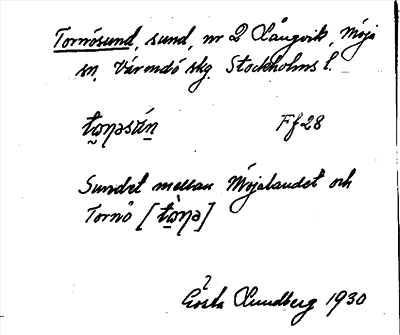 Tornösund, sund, nr 2 Långvik, Möja
sn, Värmdö skg. Stockholms l.
Ff 28
Sundet mellan Möjalandet och
Tornö
Gösta Lundberg 1930